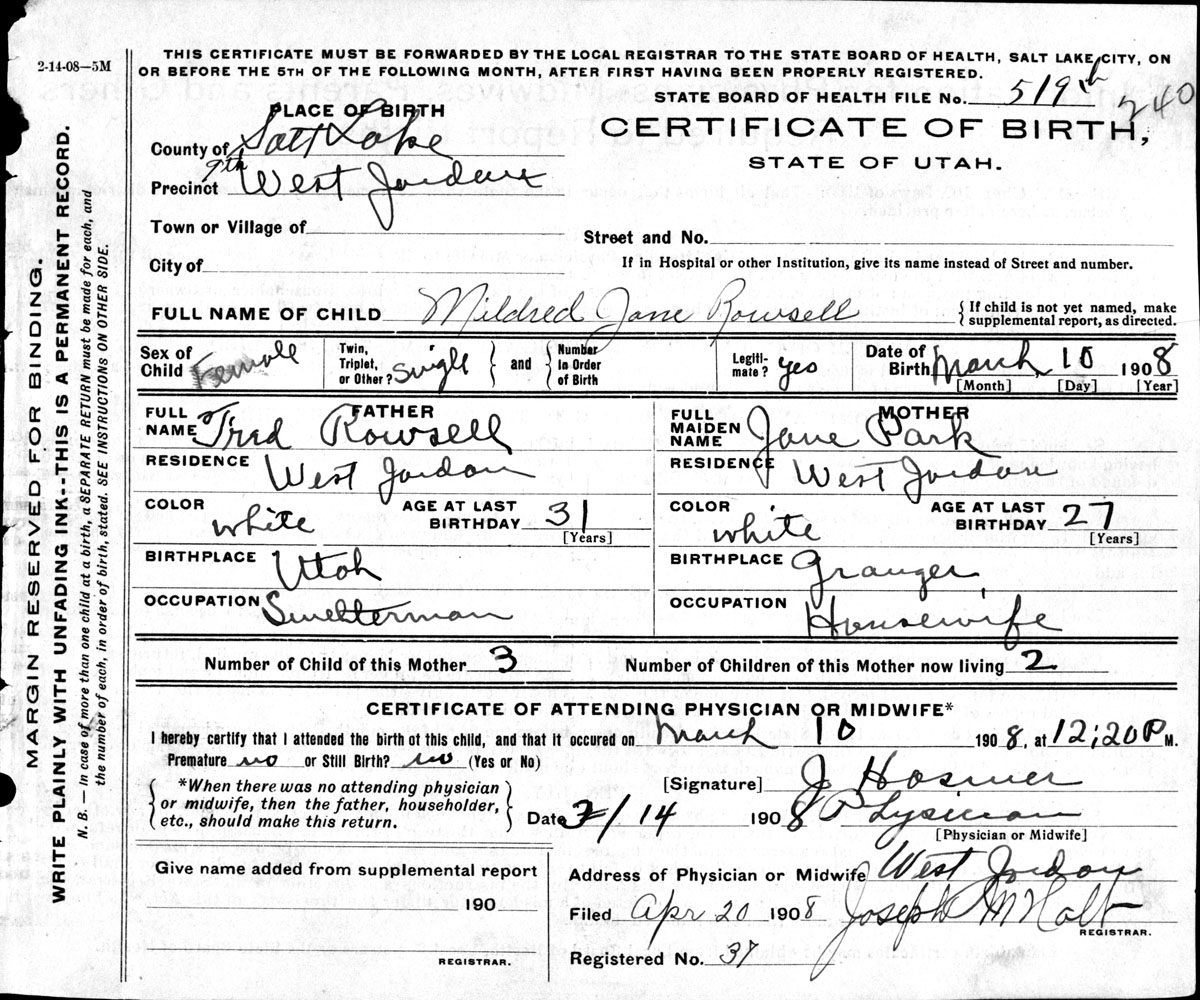 2-14-08—5M
THIS CERTIFICATE MUST BE FORWARDED BY THE LOCAL REGISTRAR TO THE STATE BOARD OF HEALTH, SALT LAKE CITY, ON
OR BEFORE THE 5TH OF THE FOLLOWING MONTH, AFTER FIRST HAVING BEEN PROPERLY REGISTERED.
STATE BOARD OF HEALTH FILE No. 519 240
PLACE OF BIRTH
CERTIFICATE OF BIRTH,
STATE OF UTAH.
County of Salt Lake
9th
Precinct West Jordan
Town or Village of
Street and No.
City of
If in Hospital or other Institution, give its name instead of Street and number.
FULL NAME OF CHILD Mildred Jane Rowsell {If child is not yet named, make
supplemental report, as directed.
Sex of Child Female Twin, Triplet, or Other? Single } and { Number In Order of Birth Legiti- mate? yes Date of Birth March 10 1908
[Month] [Day] [Year]
FATHER
FULL NAME Fred Rowsell
RESIDENCE West Jordan
COLOR white AGE AT LAST BIRTHDAY 31
[Years]
BIRTHPLACE Utah
OCCUPATION Smelterman
MOTHER
FULL MAIDEN NAME Jane Park
RESIDENCE West Jordan
COLOR white AGE AT LAST BIRTHDAY 27
[Years]
BIRTHPLACE Granger
OCCUPATION Housewife
Number of Child of this Mother 3 Number of Children of this Mother now living 2
CERTIFICATE OF ATTENDING PHYSICIAN OR MIDWIFE*
I hereby certify that I attended the birth of this child, and that it occured on March 10 1908, at 12;20 P M.
Premature no or Still Birth? no (Yes or No)
{ *When there was no attending physician
or midwife, then the father, householder,
etc., should make this return. }
[Signature] J Hosmer
Date 3/14 1908 Physician
[Physician or Midwife]
Address of Physician or Midwife West Jordan
Filed Apr 20 1908 Joseph M Holt
REGISTRAR.
Registered No. 37
Give name added from supplemental report
190
REGISTRAR.
MARGIN RESERVED FOR BINDING.
WRITE PLAINLY WITH UNFADING INK--THIS IS A PERMANENT RECORD.
N. B. — In case of more than one child at a birth, a SEPARATE RETURN must be made for each, and
the number of each, in order of birth, stated. SEE INSTRUCTIONS ON OTHER SIDE.